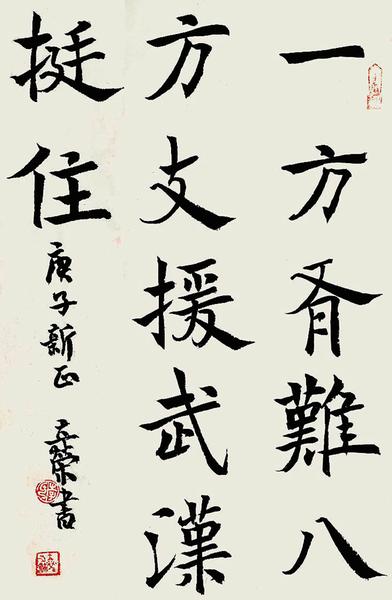 一方有難八
方支援武漢
挺住
庚子新正 榮書